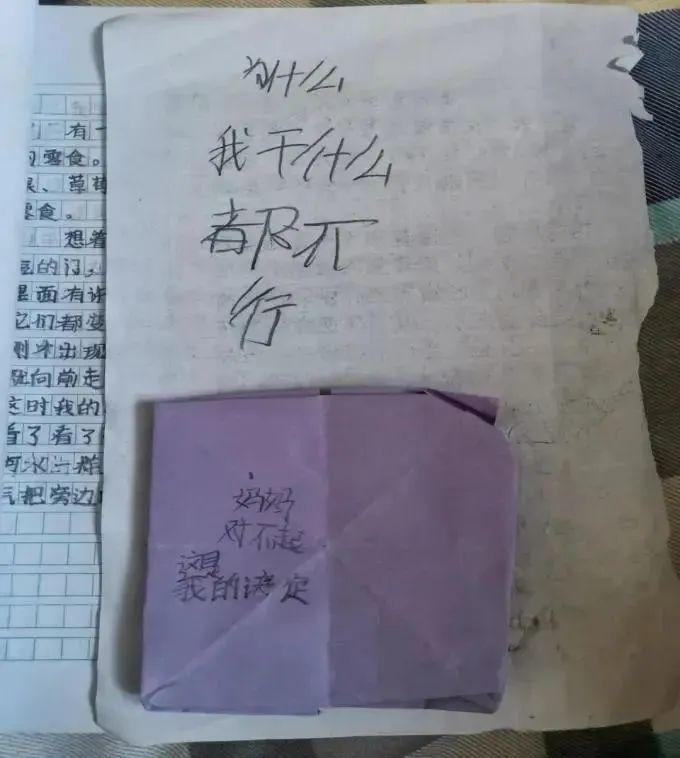 为什么
我干什么
都不
行
妈妈
对不起
这是
我的决定
有
零食。
、草莓
零食。
想着
的门，
里面有许
它们都变
出现
向前走
这时我的
看了看了
河水
气把旁边